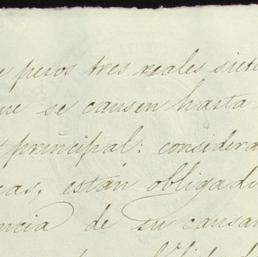 pesos tres reales siete
que se causen hasta
principal: considera
cas, están obligado
ncia de su causan